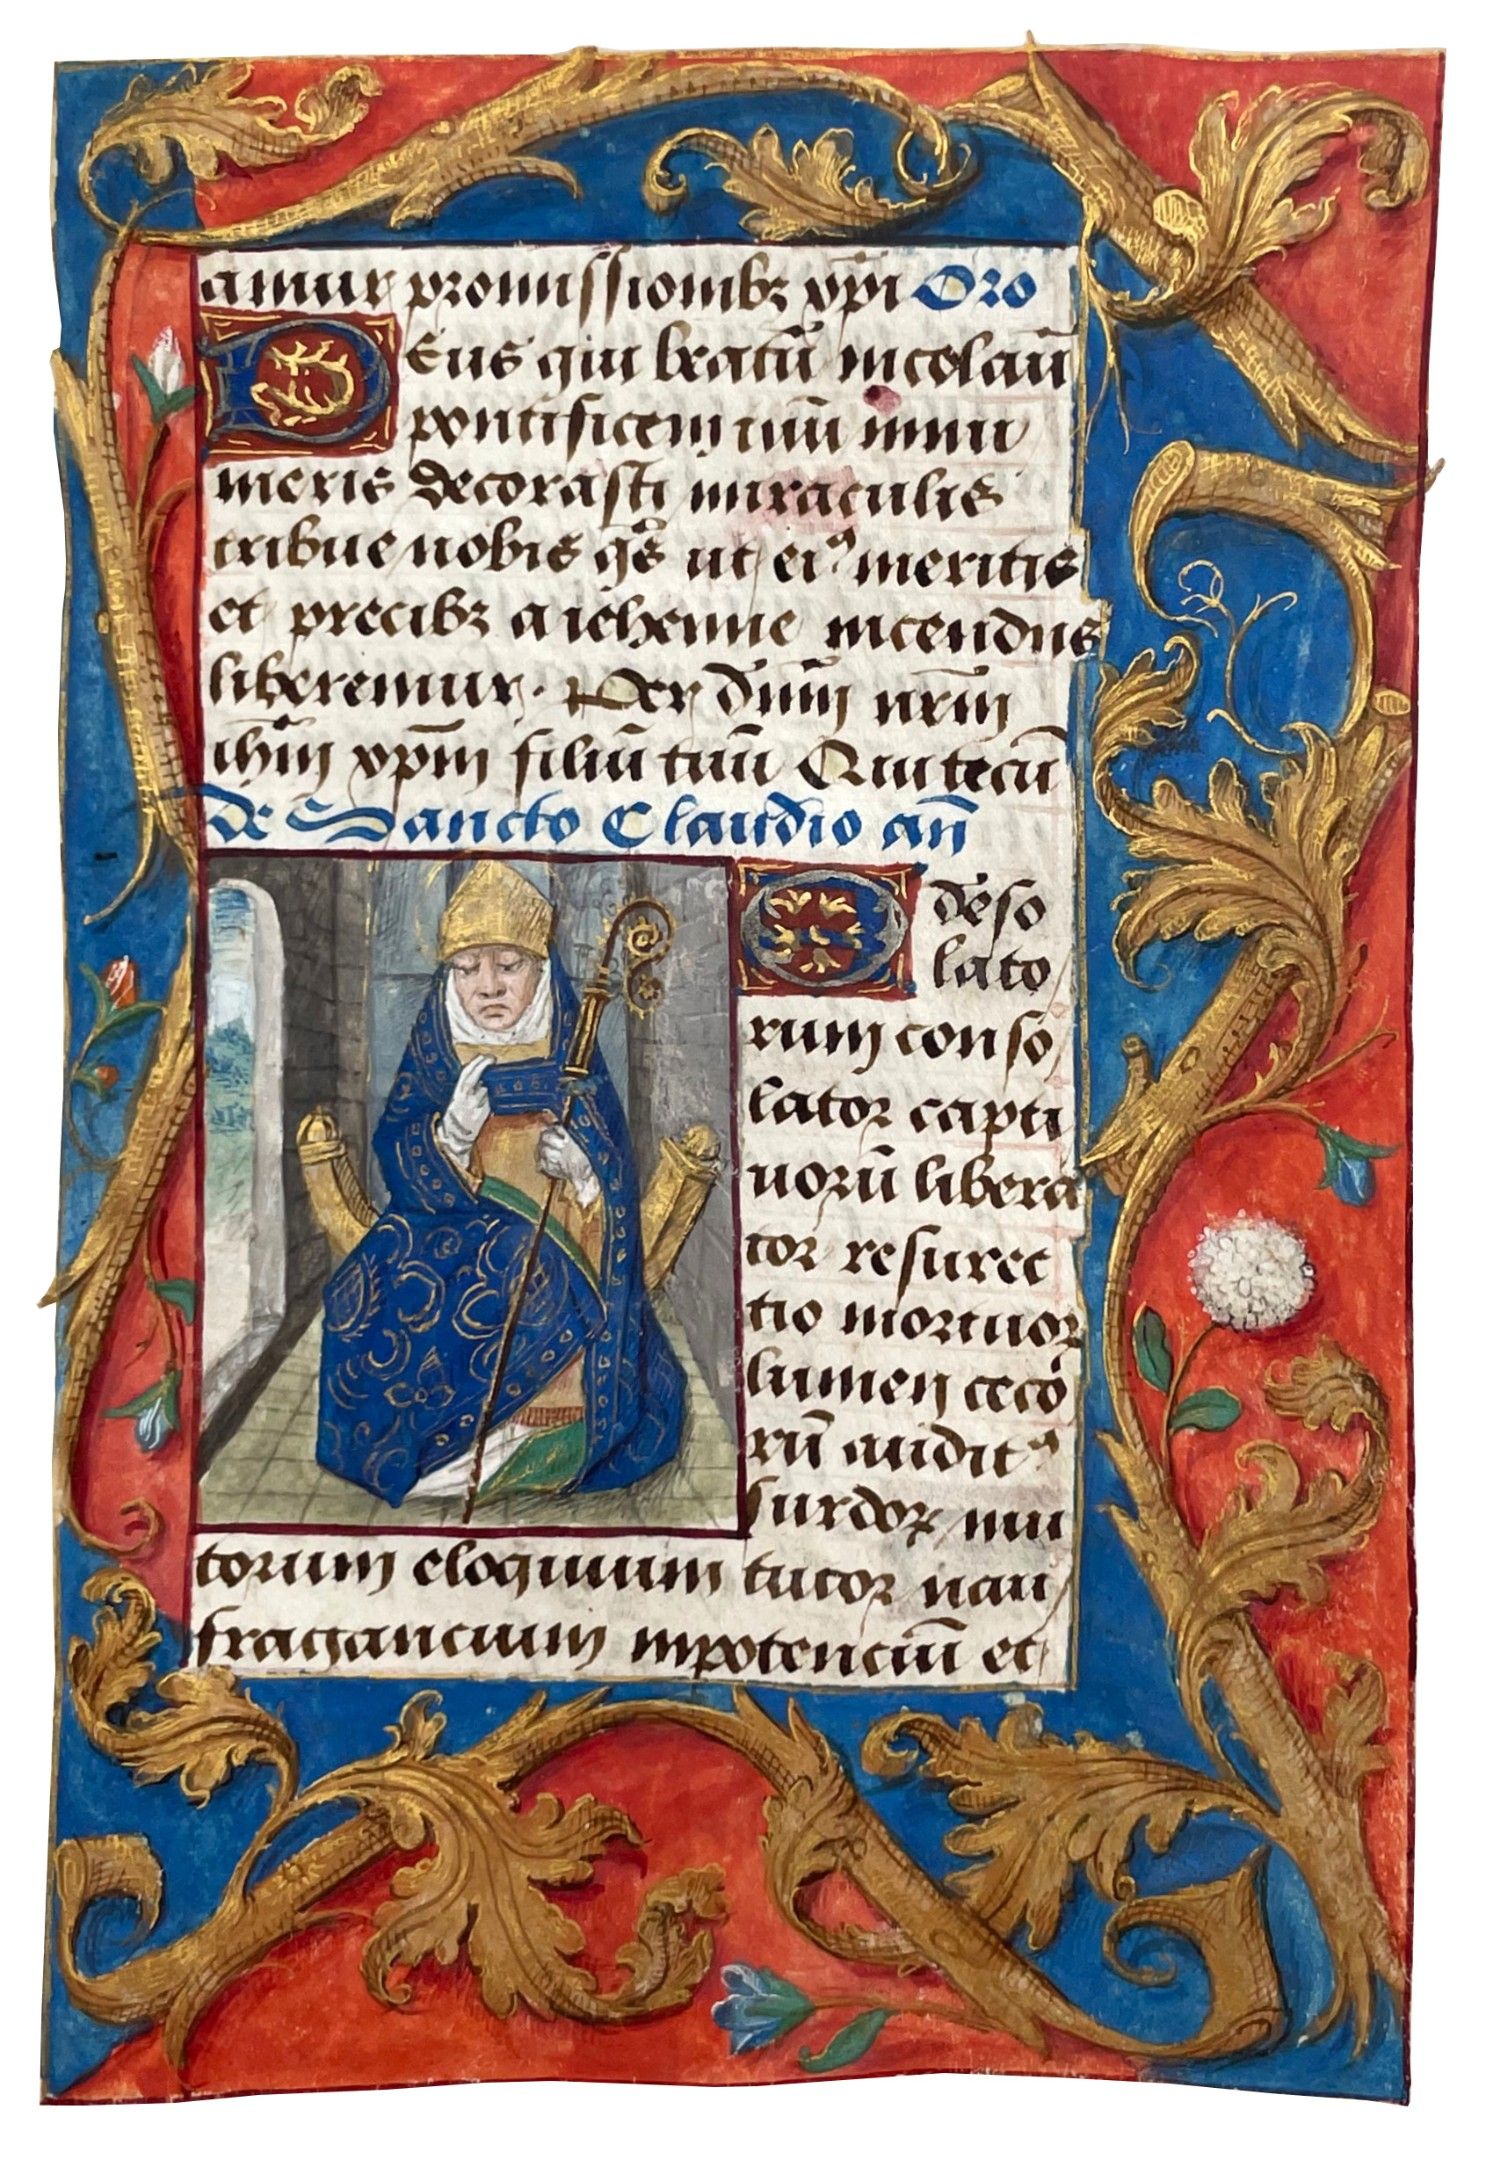 amur promissionibꝫ xp̄i Oro
Deus qui beatū nicolaū
pontificem tuū innu
meris decorasti miraculis
tribue nobis qs̄ ut eiꝰ meritis
et precibꝫ a iehenne incendiis
liberemur. Per dn̄m nr̄m
ihm̄ xpm̄ filiū tuū Qui tecū
de Sancto Claudio an̄
O deso
lato
rum conso
lator capti
uorū libera
tor resurec
tio mortuoꝝ
lumen ceco
rū auditꝰ
surdoꝝ mu
torum eloquium tutor nau
fragancium inpotenciū et